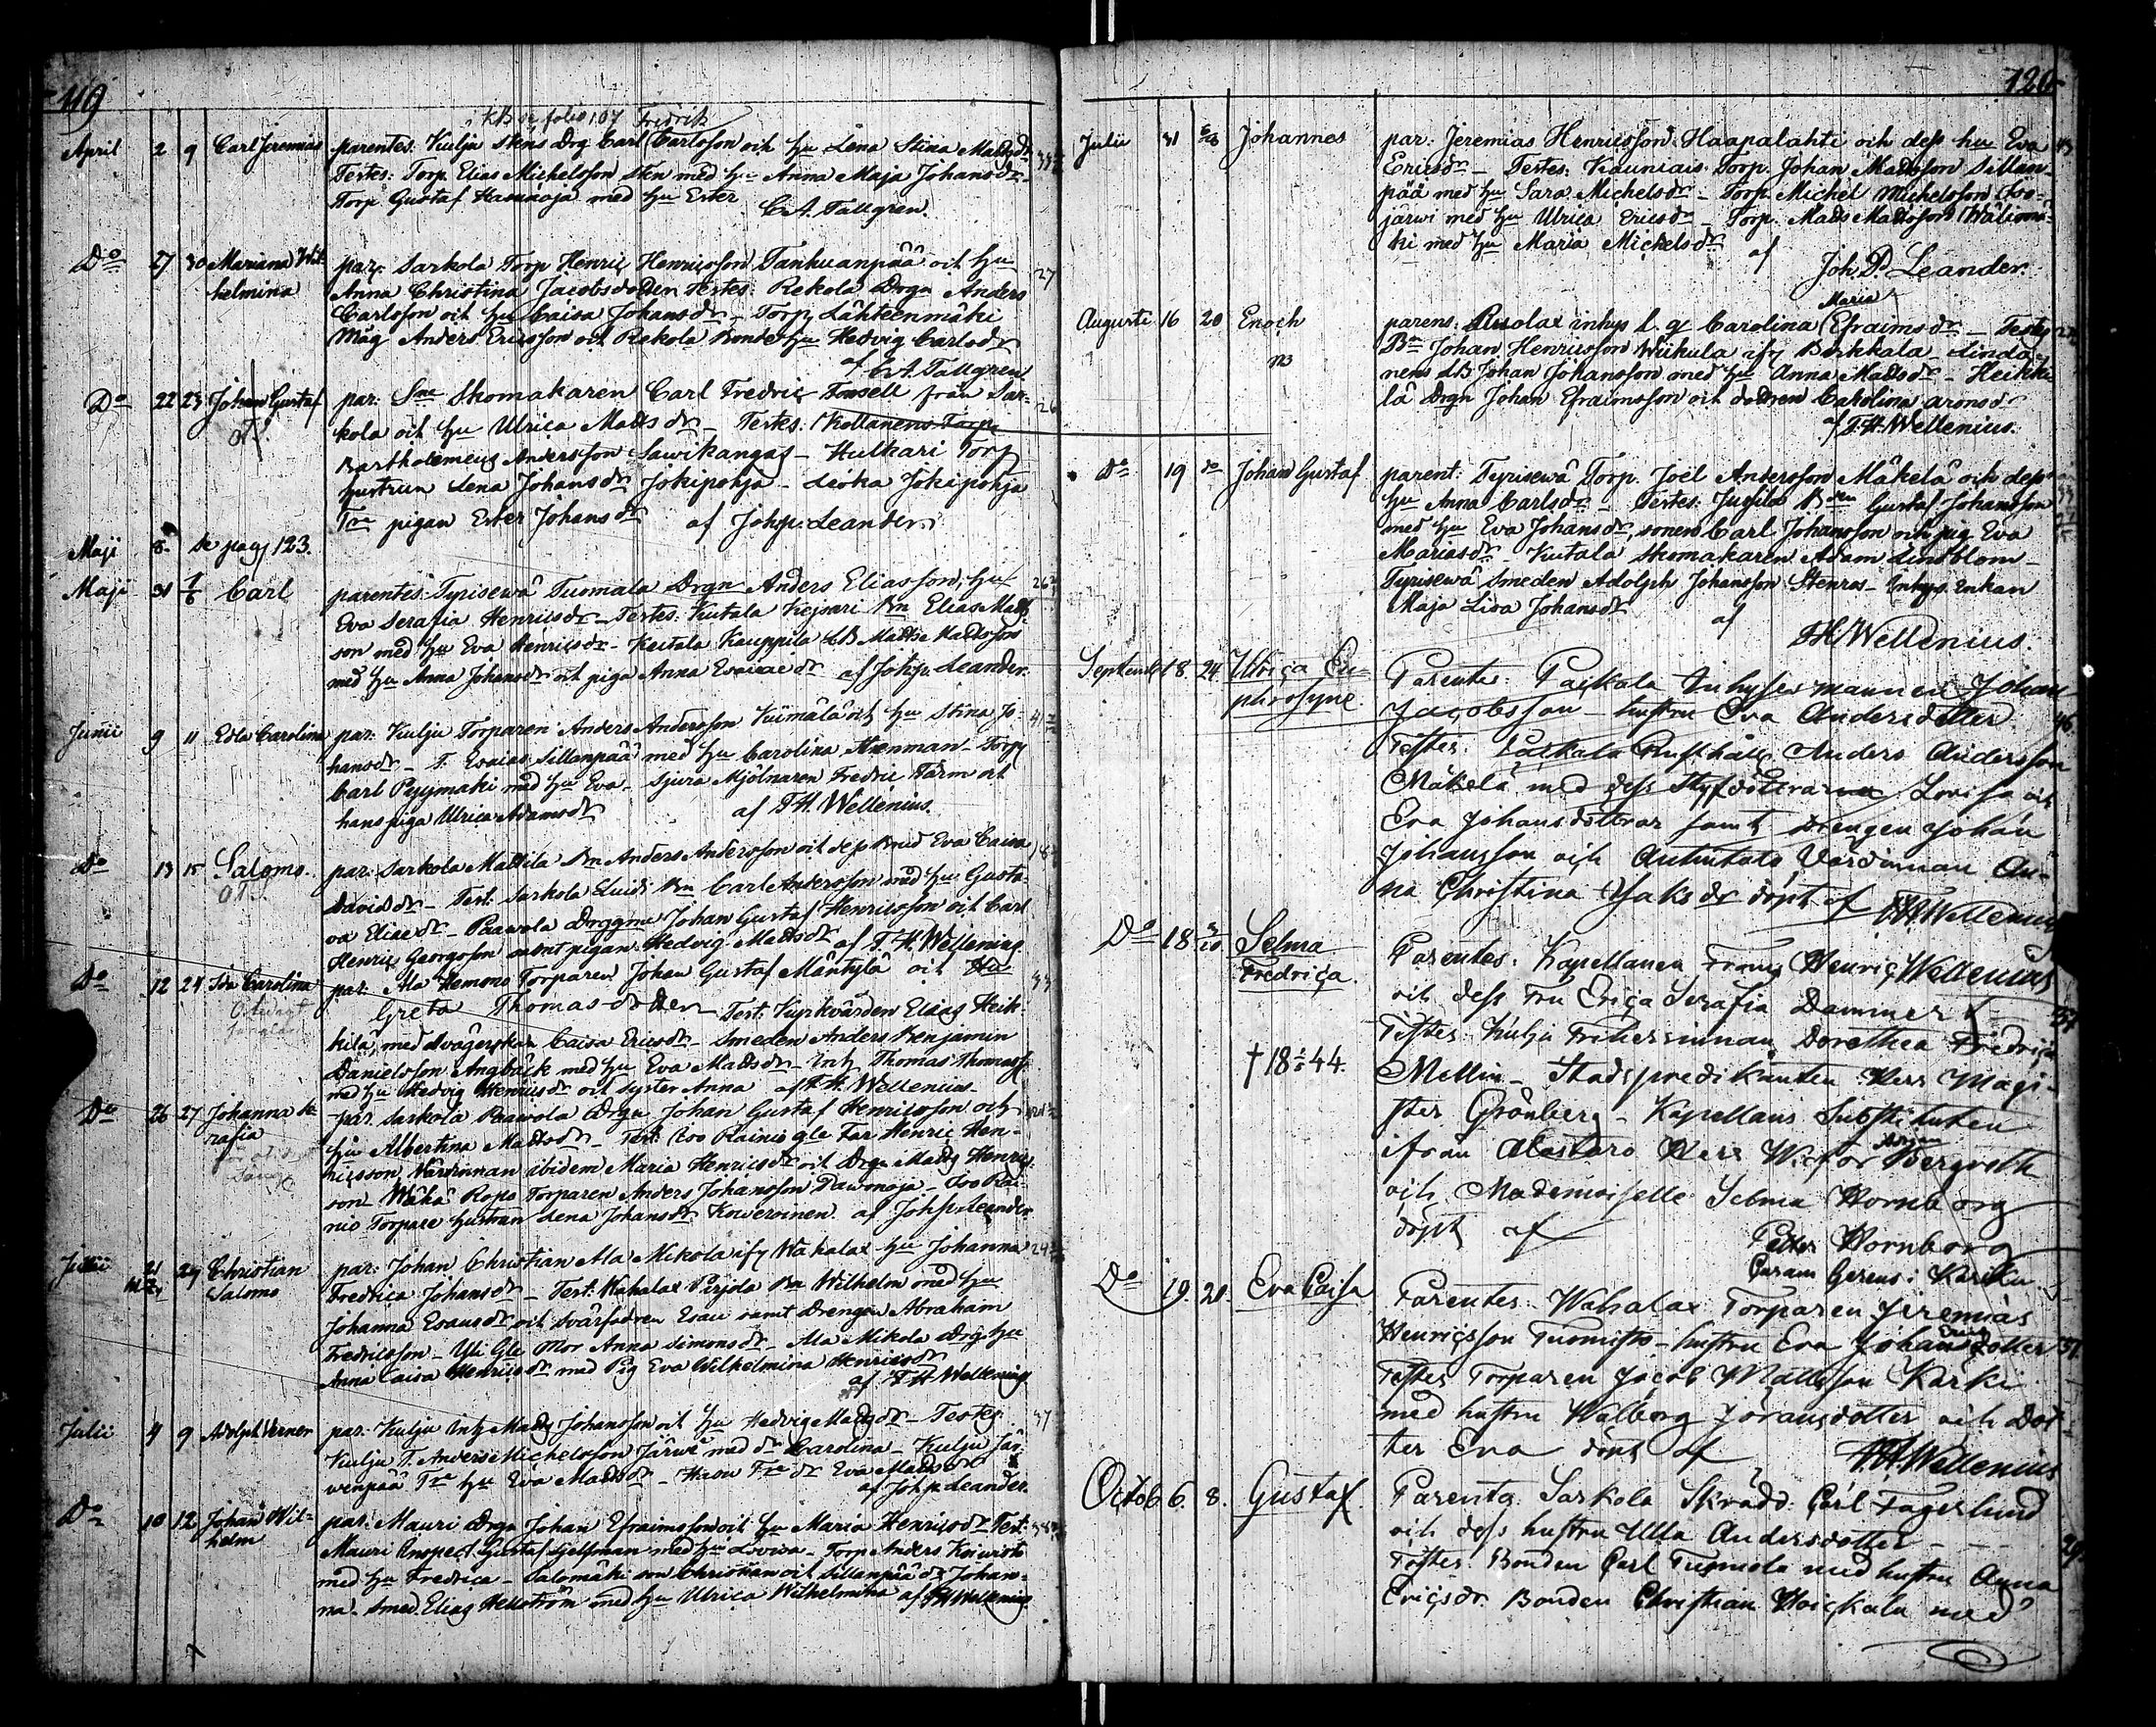 119
KB se folio 107 Fredrik
April 2 9 Carl Jeremias parentes: Kulju Stens Drg Carl Carlsson och Hu Lena Stina Mattsdr
Testes: Torp. Elias Michelsson Sten med Hu Anna Maja Johansdr
Torp Gustaf Hasunoja med Hu Ester
C. A. Tallgren.
Do 27 30 Mariana Wil- par: Sarkola Torp Henric Henricsson Tanhuanpää och Hu 27
helmina Anna Christina Jacobsdotter Testes: Rekola Drgn Anders
Carlsson och Hu Caisa Johansdr – Torp Lähteenmäki
Måg Anders Ericsson och Rekola Bonde Hu Hedvig Carlsdr
af C. A. Tallgren
Do 22 23 Johan Gustaf par: Sne Skomakaren Carl Fredric Fonsell från Sar- 26
kola och Hu Ulrica Matts dr – Testes: Kollanens Torp
Bartholemeus Andersson Sawikangas – Hulkari Torp
hustrun Lena Johansdr Jokipohja – Lioka Jokipohja
Tre pigan Ester Johansdr af Joh. P. Leander
Maji 8 Se pag 123.
Maji 31 1/6 Carl parentes: Tyrisewä Tuomala Drgn Anders Eliasson, Hu 26
Eva Serafia Henricsdr – Testes: Kutala Kejsari Bn Elias Matts-
son med Hu Eva Henricsdr – Kutala Kauppila LB Matts Mattsson
med Hu Anna Johansdr och piga Anna Esaiaedr af Joh. P. Leander.
Junii 9 11 Edla Carolina par: Kulju Torparen Anders Andersson Kuimälä och Hu Stina Jo- 41
hansdr – T. Esaias Sillanpää med Hu Carolina Stenman – Torp
Carl Pyymäki med Hu Eva – Sjura Mjölnaren Fredric Färm och
hans piga Ulrica Adamsdr af F. H. Wellenius.
Do 13 15 Salomo. par: Sarkola Mattila Bn Anders Andersson och dess Bmed Eva Caisa
Davidsdr – Test. Sarkola Luidi Bn Carl Andersson med Hu Gusta-
va Eliaedr – Paawola Drgne Johan Gustaf Henricsson och Carl
Henric Georgsson samt pigan Hedvig Mattsdr af F. H. Wellenius
Do 12 24 Ida Carolina par. Ala Hemons Torparen Johan Gustaf Mäntylä och Hu 33
Greta Thomasdotter Test: Kyrkvärden Elias Heik-
kilä, med Svägerskan Caisa Ericsdr – Smeden Anders Benjamin
Danielsson Angbäck med Hu Eva Mattsdr – Inh Thomas Thomass
med Hu Hedvig Henricsdr och syster Anna af F. H. Wellenius.
Do 26 27 Johanna Se- par Sarkola Paawola Drgn Johan Gustaf Henricsson och
rafia Hu Albertina Mattsdr – Test: Loo Rainio gle Far Henric Hen-
ricsson Värdinnan ibidem Maria Henricsdr och Drgn Matts Henrics
son Wähä Ropo Torparen Anders Johansson Pawonoja – Loo Rai-
nio Torpare hustrun Lena Johansdr Koweroinen af Joh. P. Leander
Julii 21 29 Christian par: Johan Christian Ala Mikola ifr Wahalax Hu Johanna 24
Salomo Fredrica Johansdr – Test: Wahalax Pirjola Bn Wilhelm med Hu
Johanna Esausdr och svärfadren Esau samt Drengen Abraham
Fredricsson – Yli Gle Mor Anna Simonsdr – Ala Mikola drgs Hu
Anna Caisa Henricsdr med Pig Eva Wilhelmina Henricsdr
af F. H. Wellenius
Julii 4 9 Adolph Verner par: Kulju Inh Matts Johansson och Hu Hedvig Mattsdr – Testes: 37
Kulju T. Anders Michelsson Järwe med dr Carolina – Kulju Jär-
wenpää Tre Hu Eva Mattsdr – Hasu Tre dr Eva Mattsdr
af Joh. P. Leander.
Do 10 12 Johan Wil- par: Mauri Drgn Johan Efraimsson och Hu Maria Henricsdr Test:
helm Mauri Inspect. Gustaf Hjelpman med Hu Lovisa – Torp Anders Koiwisto
med Hu Fredrica – Salomäki son Christian och Sillanpää dr Johan-
na. Smed. Elias Hellström med Hu Ulrica Wilhelmina af F H Wellenius
120
Julii 31 Johannes par: Jeremias Henricsson Haapalahti och dess hu Eva 43
Ericsdr – Testes: Kauniais Torp. Johan Mattsson Sillan-
pää med Hu Sara Michelsdr – Torp. Michel Michelsson Loo-
järwi med Hu Ulrica Ericsdr – Torp. Matts Mattsson Wälimä-
ki med Hu Maria Michelsdr
af Joh. P. Leander.
Maria
Augusti 16 20 Enoch parens: Pusolax inhys L. q Carolina Efraimsdr – Testes
NB Bn Johan Henricsson Wiikula ifr Birkkala – Linda-
nens LB Johan Johansson med Hu Anna Mattsdr – Heikki-
lä Drgn Johan Efraimsson och dottren Carolina Aronsdr
af F. H. Wellenius.
Do 19 do Johan Gustaf parent: Tyrisewä Torp. Joël Andersson Mäkelä och dess
Hu Anna Carlsdr – Testes: Jussila Bden Gustaf Johansson
med Hu Eva Johansdr, sonen Carl Johansson och pig. Eva
Mariasdr Kutala Skomakaren Adam Lindblom –
Tyrisewä Smeden Adolph Johansson Stenros – Inhys Enkan
Maja Lisa Johansdr
af F H Wellenius.
September 18. 24. Ulrica Eu- Parentes: Paikala Inhysesmannen Johan
phrosyne. Jacobsson – hustru Eva Andersdotter 46.
Testes: Paikala Rusthåll. Anders Andersson
Mäkelä med dess Styfdöttrarna Lovisa och
Eva Johansdöttrar samt Drengen Johan
Johansson och Anhintalo Värdinnan An-
na Christina Isaksdr döpt af F H Wellenius
Do 18. Selma Parentes: Kapellanen Frans Henric Wellenius
Fredrica. och dess Fru Erica Serafia Dammert 37
Testes: Kulju Friherrinnan Dorothea Fredrica
† 18 44. Mellin – Stadspredikanten Herr Magi-
ster Grönberg – Kapellans Substituten
ifrån Alastaro Herr Victor Bergroth
och Mademoiselle Selma Hornborg
döpt af Petter Hornborg
Curam Gerens i Karkku
Do 19. 20. Eva Caisa Parentes: Wahalax Torparen Jeremias
Henricsson Tuomisto – hustru Eva Johansdotter 31.
Erics
Testes Torparen Jacob Mattsson Karki
med hustru Walborg Göransdotter och Dot-
ter Eva döpt af F H Wellenius
Octob 6. 8. Gustaf. Parentes: Sarkola Skrädd. Carl Fagerlund
och dess hustru Ulla Andersdotter – 29.
Testes: Bonden Carl Tuomola med hustru Anna
Ericsdr. Bonden Christian Hoickala med